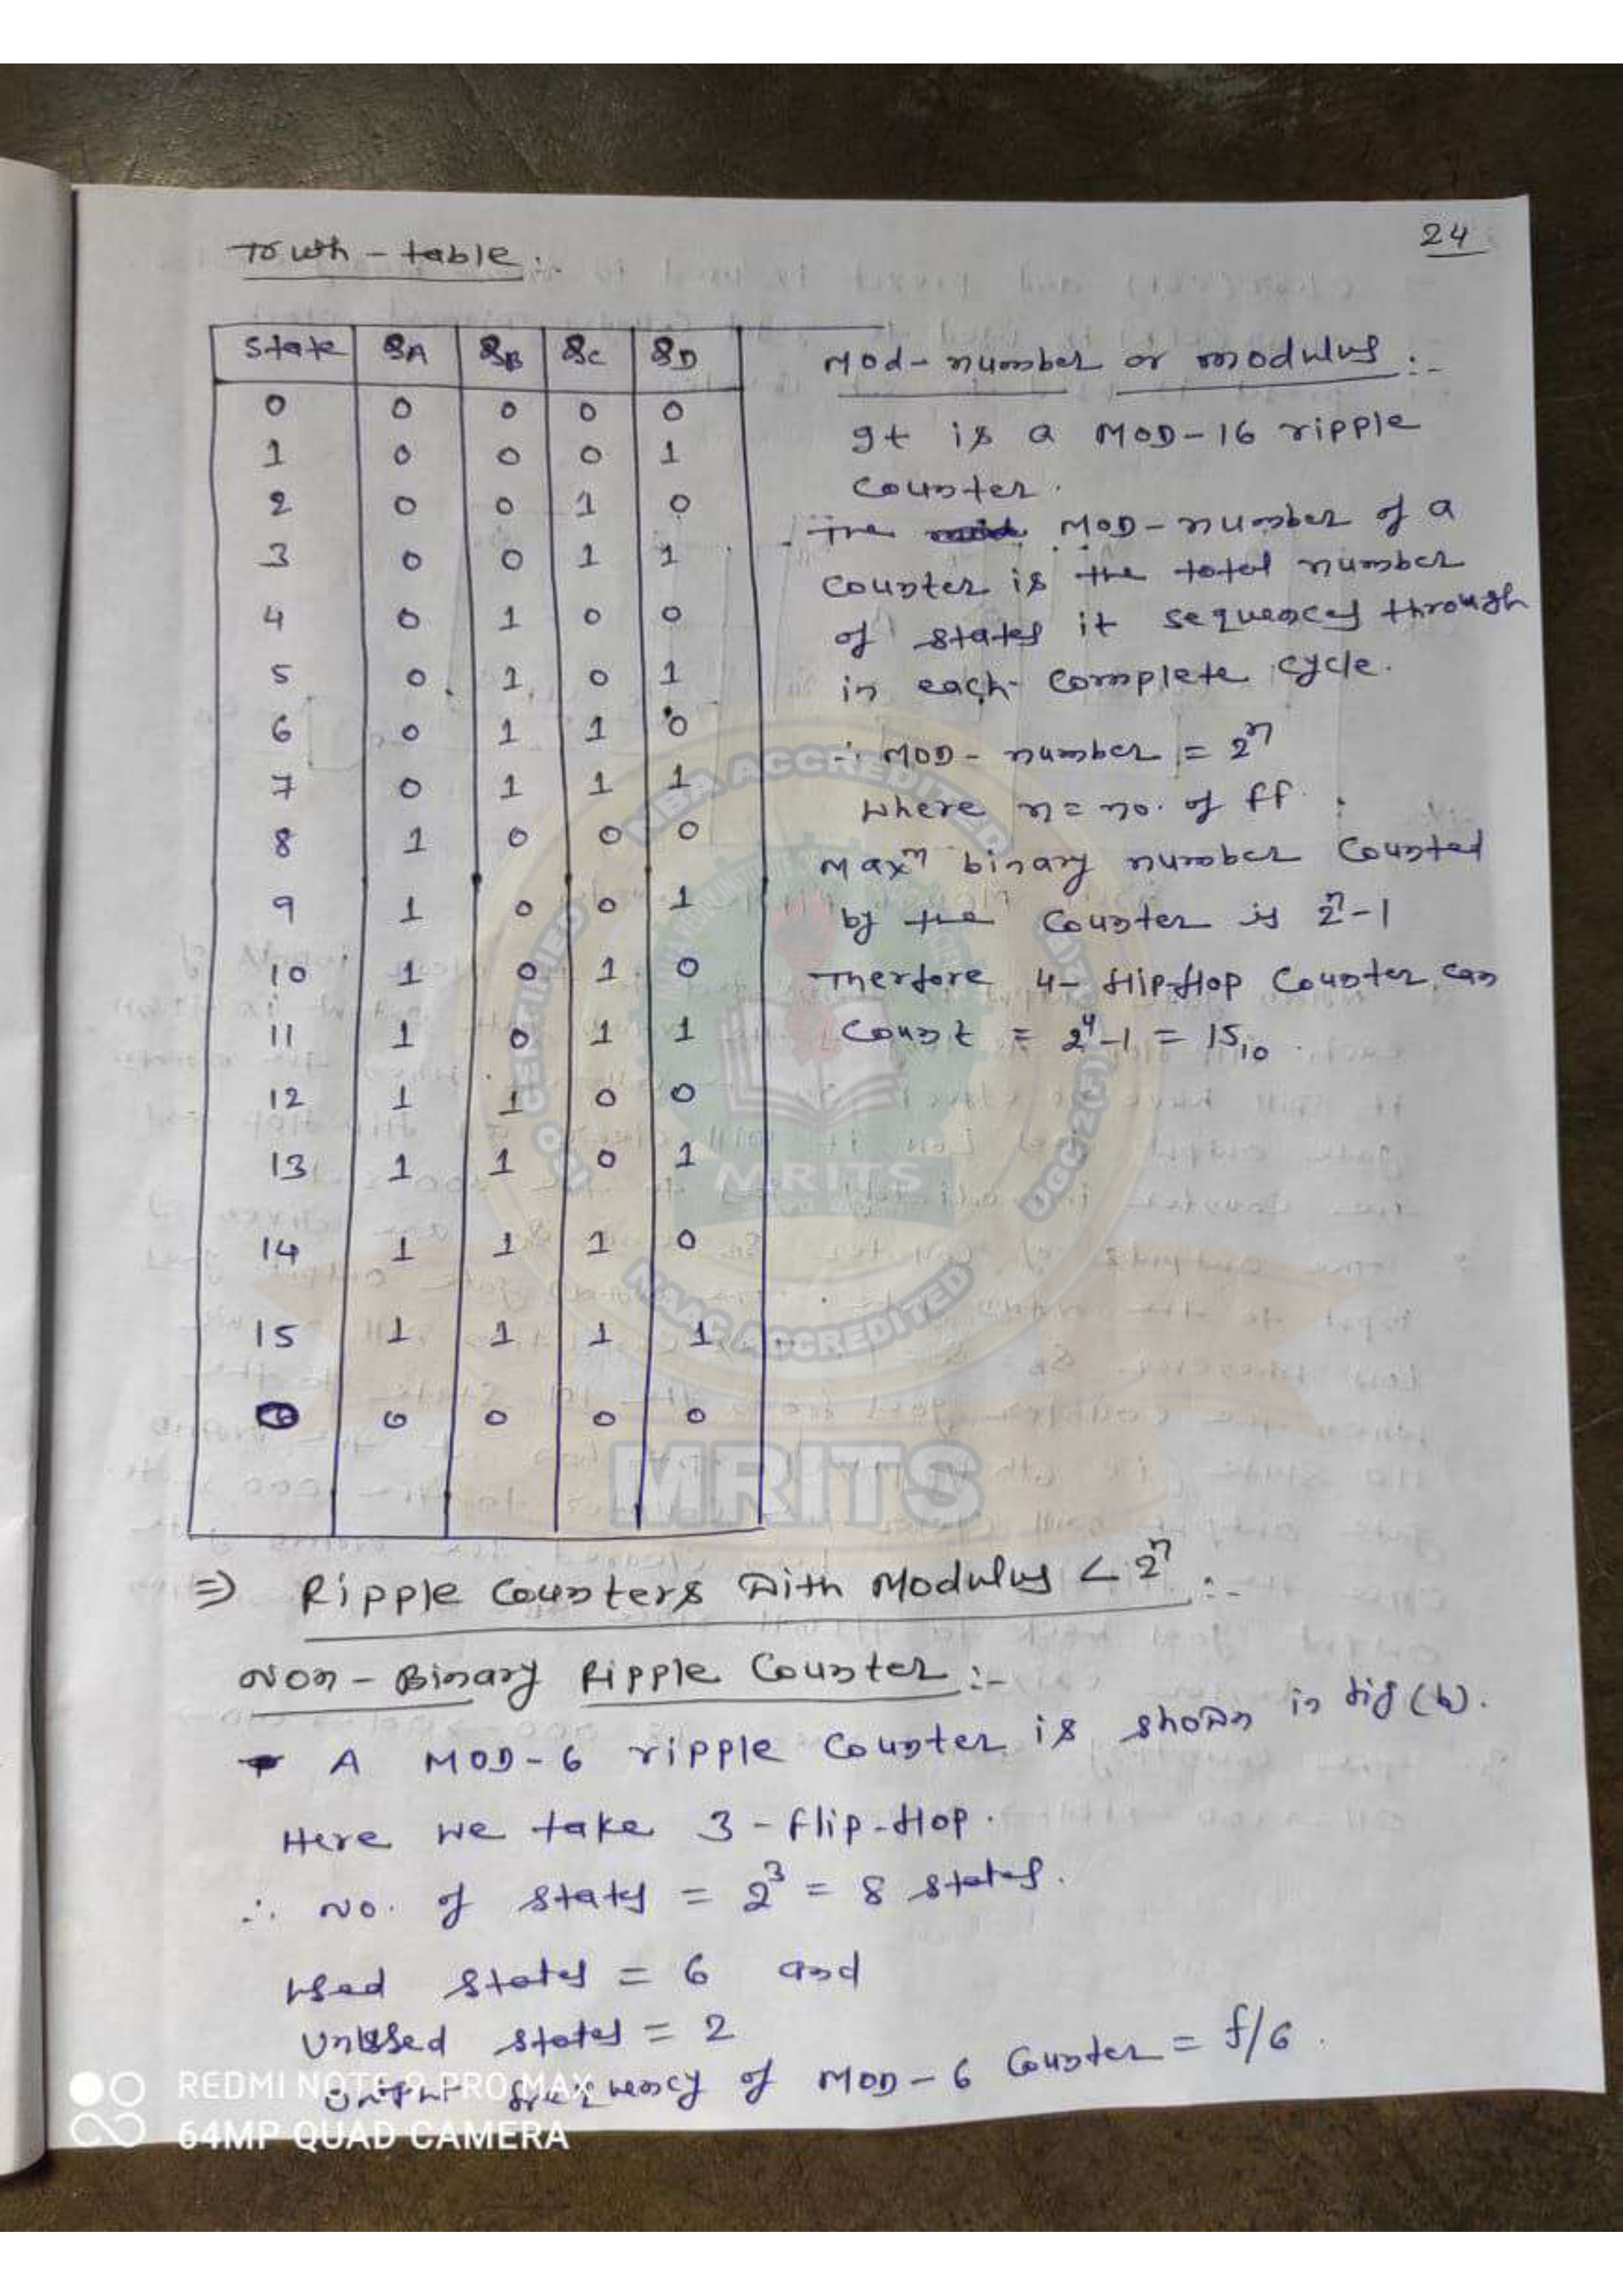 24
Truth-table:
State QA QB QC QD
0 0 0 0 0
1 0 0 0 1
2 0 0 1 0
3 0 0 1 1
4 0 1 0 0
5 0 1 0 1
6 0 1 1 0
7 0 1 1 1
8 1 0 0 0
9 1 0 0 1
10 1 0 1 0
11 1 0 1 1
12 1 1 0 0
13 1 1 0 1
14 1 1 1 0
15 1 1 1 1
0 0 0 0 0
Mod-number or modulus :-
It is a MOD-16 ripple
Counter.
The MOD-number of a
Counter is the total number
of states it sequences through
in each complete cycle.
∴ MOD-number = 2ⁿ
Where n = no. of ff.
Maxᵐ binary number Counted
by the Counter is 2ⁿ-1
Therfore 4-flip-flop Counter can
Count = 2⁴-1 = 15₁₀.
⇒ Ripple Counters With Modulus < 2ⁿ :-
Non-Binary Ripple Counter :-
A MOD-6 ripple Counter is shown in fig (b).
Here we take 3-flip-flop.
∴ No. of states = 2³ = 8 states.
Used states = 6 and
Unused states = 2
frequency of MOD-6 Counter = f/6.
NBA ACCREDITED
UGC 2(F)
NAAC ACCREDITED
ISO CERTIFIED
MRITS
MRITS
REDMI NOTE 9 PRO MAX
64MP QUAD CAMERA